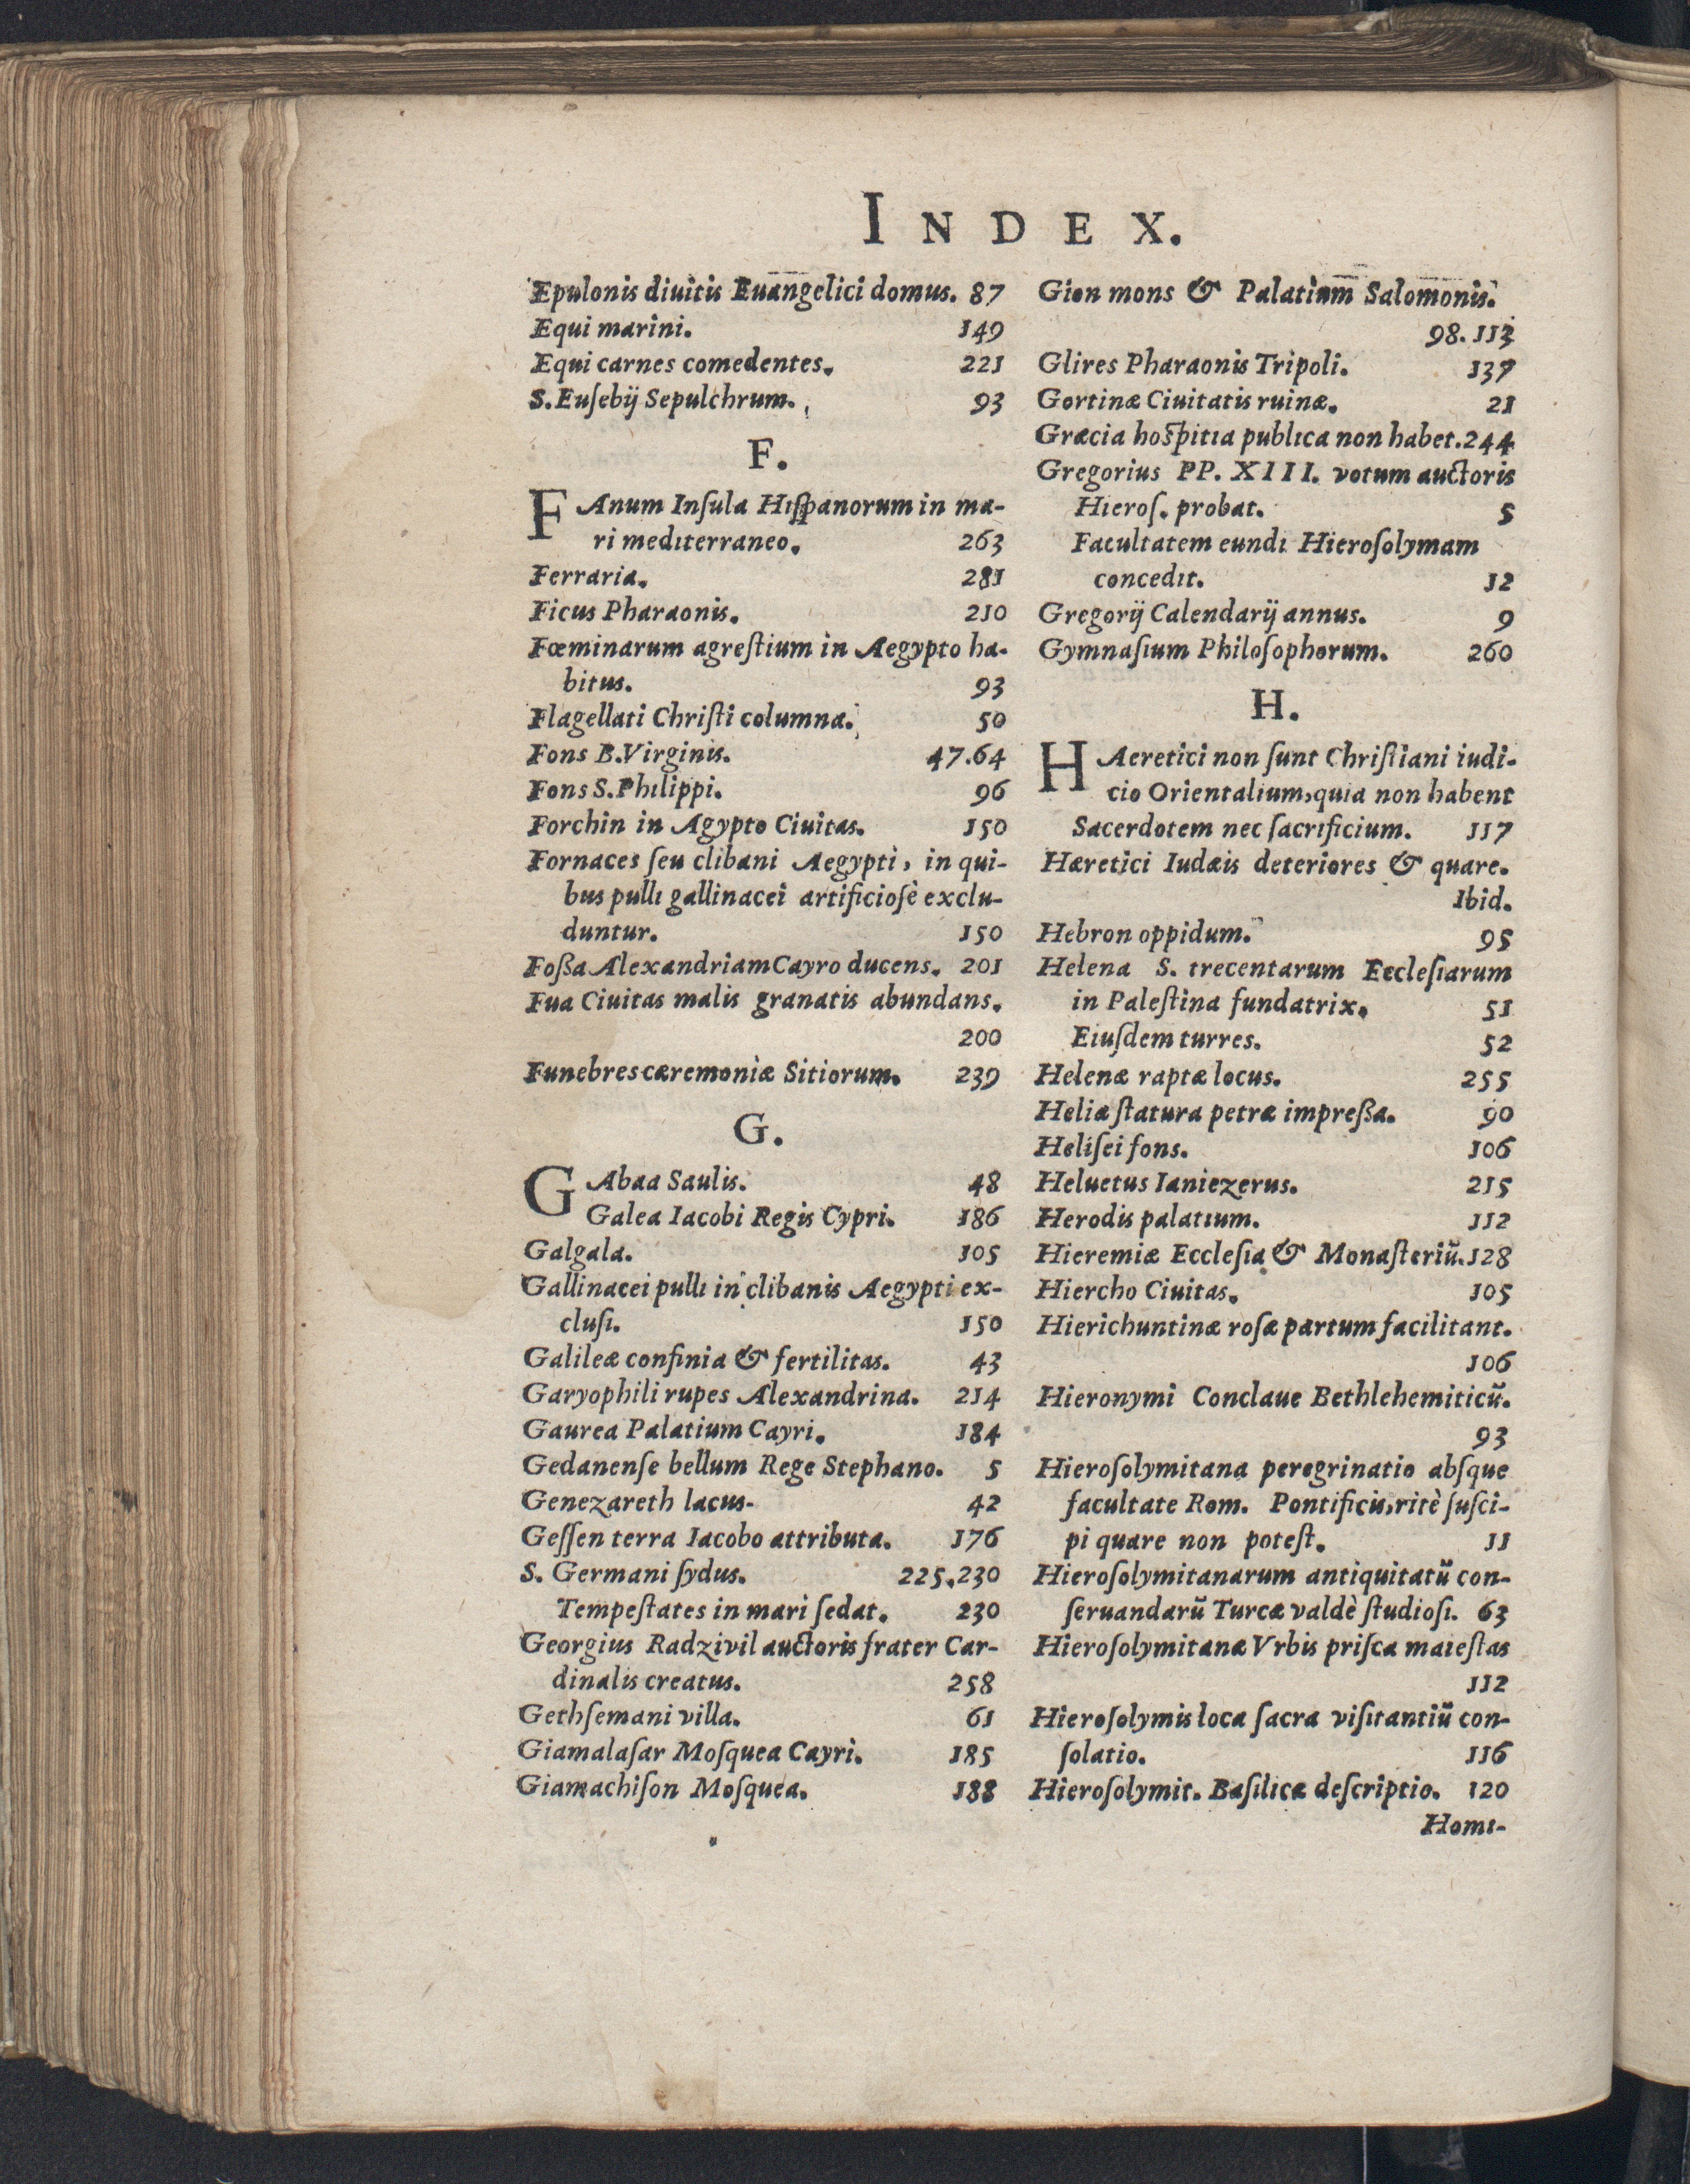 INDEX.
Epulonis diuitis Euangelici domus. 87
Equi marini. 149
Equi carnes comedentes. 221
S. Euſebij Sepulchrum. 93
F.
FAnum Inſula Hiſpanorum in ma-
ri mediterraneo. 263
Ferraria. 281
Ficus Pharaonis. 210
Fœminarum agreſtium in Aegypto ha-
bitus. 93
Flagellati Chriſti columna. 50
Fons B. Virginis. 47.64
Fons S. Philippi. 96
Forchin in Agypto Ciuitas. 150
Fornaces ſeu clibani Aegypti, in qui-
bus pulli gallinacei artificioſè exclu-
duntur. 150
Foßa Alexandriam Cayro ducens. 201
Fua Ciuitas malis granatis abundans.
200
Funebres cæremoniæ Sitiorum. 239
G.
GAbaa Saulis. 48
Galea Iacobi Regis Cypri. 186
Galgala. 105
Gallinacei pulli in clibanis Aegypti ex-
cluſi. 150
Galileæ confinia & fertilitas. 43
Garyophili rupes Alexandrina. 214
Gaurea Palatium Cayri. 184
Gedanenſe bellum Rege Stephano. 5
Genezareth lacus. 42
Geſſen terra Iacobo attributa. 176
S. Germani ſydus. 225.230
Tempeſtates in mari ſedat. 230
Georgius Radzivil auctoris frater Car-
dinalis creatus. 258
Gethſemani villa. 61
Giamalaſar Moſquea Cayri. 185
Giamachiſon Moſquea. 188
Gion mons & Palatium Salomonis.
98.113
Glires Pharaonis Tripoli. 137
Gortinæ Ciuitatis ruinæ. 21
Græcia hoſpitia publica non habet. 244
Gregorius PP. XIII. votum auctoris
Hieroſ. probat. 5
Facultatem eundi Hieroſolymam
concedit. 12
Gregorij Calendarij annus. 9
Gymnaſium Philoſophorum. 260
H.
HAeretici non ſunt Chriſtiani iudi-
cio Orientalium, quia non habent
Sacerdotem nec ſacrificium. 117
Hæretici Iudæis deteriores & quare.
Ibid.
Hebron oppidum. 95
Helena S. trecentarum Eccleſiarum
in Paleſtina fundatrix. 51
Eiuſdem turres. 52
Helenæ raptæ locus. 255
Heliæ ſtatura petræ impreßa. 90
Heliſei fons. 106
Heluetus Ianiezerus. 215
Herodis palatium. 112
Hieremiæ Eccleſia & Monaſteriũ. 128
Hiercho Ciuitas. 105
Hierichuntinæ roſæ partum facilitant.
106
Hieronymi Conclaue Bethlehemiticũ.
93
Hieroſolymitana peregrinatio abſque
facultate Rom. Pontificis, ritè ſuſci-
pi quare non poteſt. 11
Hieroſolymitanarum antiquitatũ con-
ſeruandarũ Turcæ valdè ſtudioſi. 63
Hieroſolymitanæ Vrbis priſca maieſtas
112
Hieroſolymis loca ſacra viſitantiũ con-
ſolatio. 116
Hieroſolymit. Baſilicæ deſcriptio. 120
Homi-